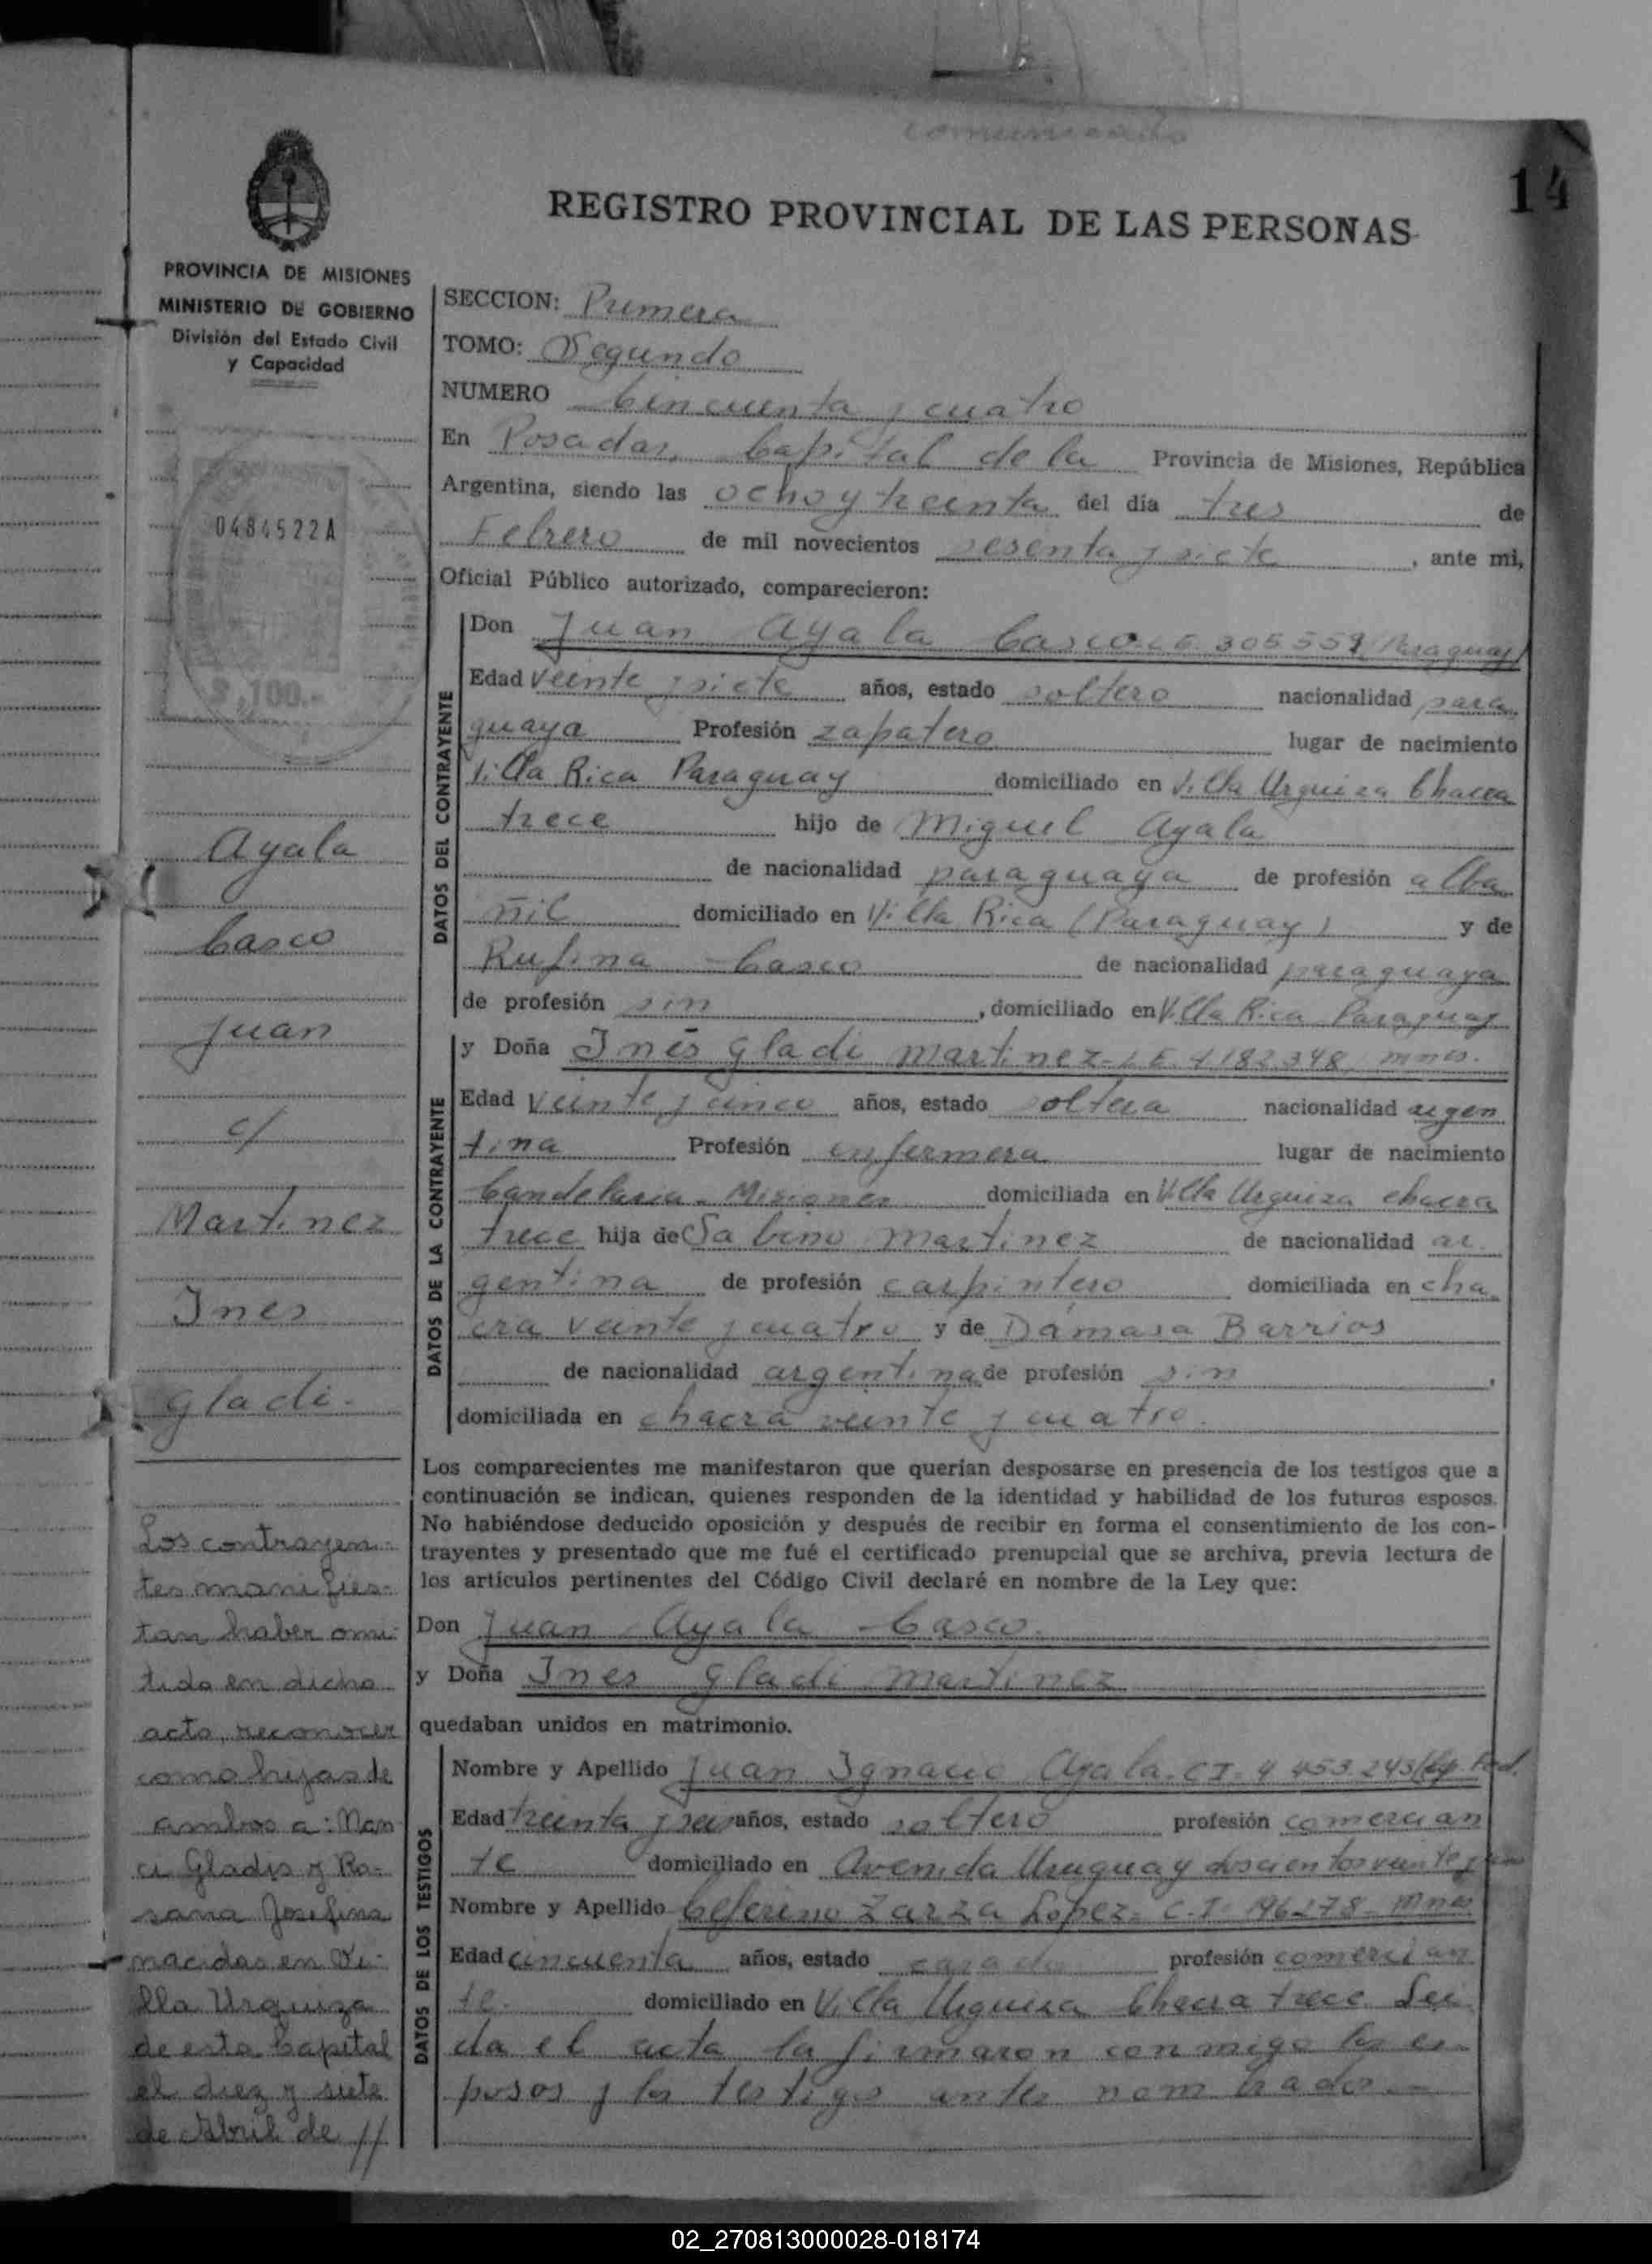 comunicado
14
REGISTRO PROVINCIAL DE LAS PERSONAS
PROVINCIA DE MISIONES
MINISTERIO DE GOBIERNO
División del Estado Civil
y Capacidad
0484522A
$ 100.-
Ayala
Casco
Juan
c/
Martinez
Ines
Gladi.
Los contrayen-
tes manifies-
tan haber omi-
tido en dicho
acto, reconocer
como hijas de
ambos a: Nan-
ci Gladis y Ro-
sana Josefina
nacidas en Vi-
lla Urquiza
de esta Capital
el diez y siete
de Abril de //
SECCION: Primera
TOMO: Segundo
NUMERO Cincuenta y cuatro
En Posadas, Capital de la Provincia de Misiones, República
Argentina, siendo las ocho y treinta del día tres de
Febrero de mil novecientos sesenta y siete, ante mi,
Oficial Público autorizado, comparecieron:
DATOS DEL CONTRAYENTE
Don Juan Ayala Casco 305559 (Paraguay)
Edad veinte y siete años, estado soltero nacionalidad para
guaya Profesión zapatero lugar de nacimiento
Villa Rica Paraguay domiciliado en Villa Urquiza Chacra
trece hijo de Miguel Ayala
de nacionalidad paraguaya de profesión alba
ñil domiciliado en Villa Rica (Paraguay) y de
Rufina Casco de nacionalidad paraguaya
de profesión sin, domiciliado en Villa Rica Paraguay
DATOS DE LA CONTRAYENTE
y Doña Inés Gladi Martinez - L E 1.182.348 mnes.
Edad veinte y cinco años, estado soltera nacionalidad argen
tina Profesión enfermera lugar de nacimiento
Candelaria - Misiones domiciliada en Villa Urquiza chacra
trece hija de Sabino Martinez de nacionalidad ar
gentina de profesión carpintero domiciliada en cha
cra veinte y cuatro y de Dámasa Barrios
de nacionalidad argentina de profesión sin,
domiciliada en chacra veinte y cuatro.
Los comparecientes me manifestaron que querían desposarse en presencia de los testigos que a
continuación se indican, quienes responden de la identidad y habilidad de los futuros esposos.
No habiéndose deducido oposición y después de recibir en forma el consentimiento de los con-
trayentes y presentado que me fué el certificado prenupcial que se archiva, previa lectura de
los artículos pertinentes del Código Civil declaré en nombre de la Ley que:
Don Juan Ayala Casco.
y Doña Ines Gladi Martinez
quedaban unidos en matrimonio.
DATOS DE LOS TESTIGOS
Nombre y Apellido Juan Ignacio Ayala - C I - 4 453.243 Fed.
Edad treinta y seis años, estado soltero profesión comercian
te domiciliado en Avenida Uruguay doscientos veinte y
Nombre y Apellido Ceferino Zarza López - C.I. 196278 - Mnes
Edad cincuenta años, estado casado profesión comercian
te. domiciliado en Villa Urquiza Chacra trece. Lei
da el acta la firmaron conmigo los es-
posos y los testigos antes nombrados.-
02_270813000028-018174